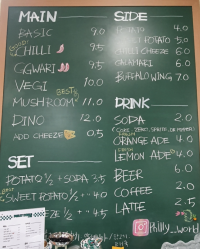 MAIN
BASIC 9.0
CHILLI 9.5
GGWARI 9.5
VEGI 10.0
BEST
MUSHROOM 11.0
DINO 12.0
ADD CHEESE 0.5
SET
POTATO ½ + SODA 3.5
SWEET POTATO ½ + 4.0
½ + 4.5
SIDE
POTATO 4.0
SWEET POTATO 5.0
CHILLI CHEEZE 6.0
CALAMARI 6.0
BUFFALO WING 7.0
DRINK
SODA 2.0
ORANGE ADE 4.0
LEMON ADE 4.0
BEER 6.0
COFFEE 2.0
LATTE 2.5
Philly_world